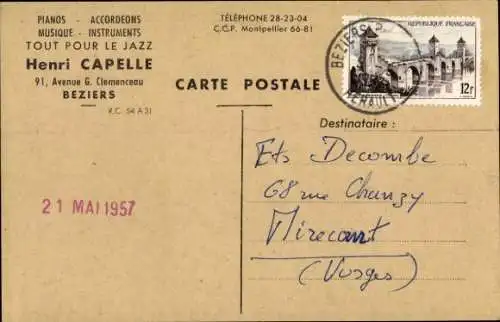 PIANOS - ACCORDEONS
MUSIQUE - INSTRUMENTS
TOUT POUR LE JAZZ
Henri CAPELLE
91, Avenue G. Clemenceau
BEZIERS
R.C. 54 A 31
TÉLÉPHONE 28-23-04
C.C.P. Montpellier 66-81
CARTE POSTALE
BEZIERS
HERAULT
REPUBLIQUE FRANÇAISE
12F
Destinataire :
Ets Decombe
68 rue Chanzy
Mirecourt
(Vosges)
21 MAI 1957